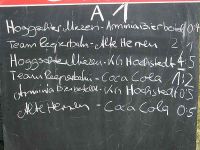 A1
Hoggechter Miezen - Arminia Bierbeitel 0:4
Team Regierbahn - Alte Herren 2:1
Hoggechter Miezen - KG Hochstedt 4:5
Team Regierbahn - Coca Cola 1:2
Arminia Bierbeitel - KG Hochstedt 0:5
Alte Herren - Coca Cola 0:5